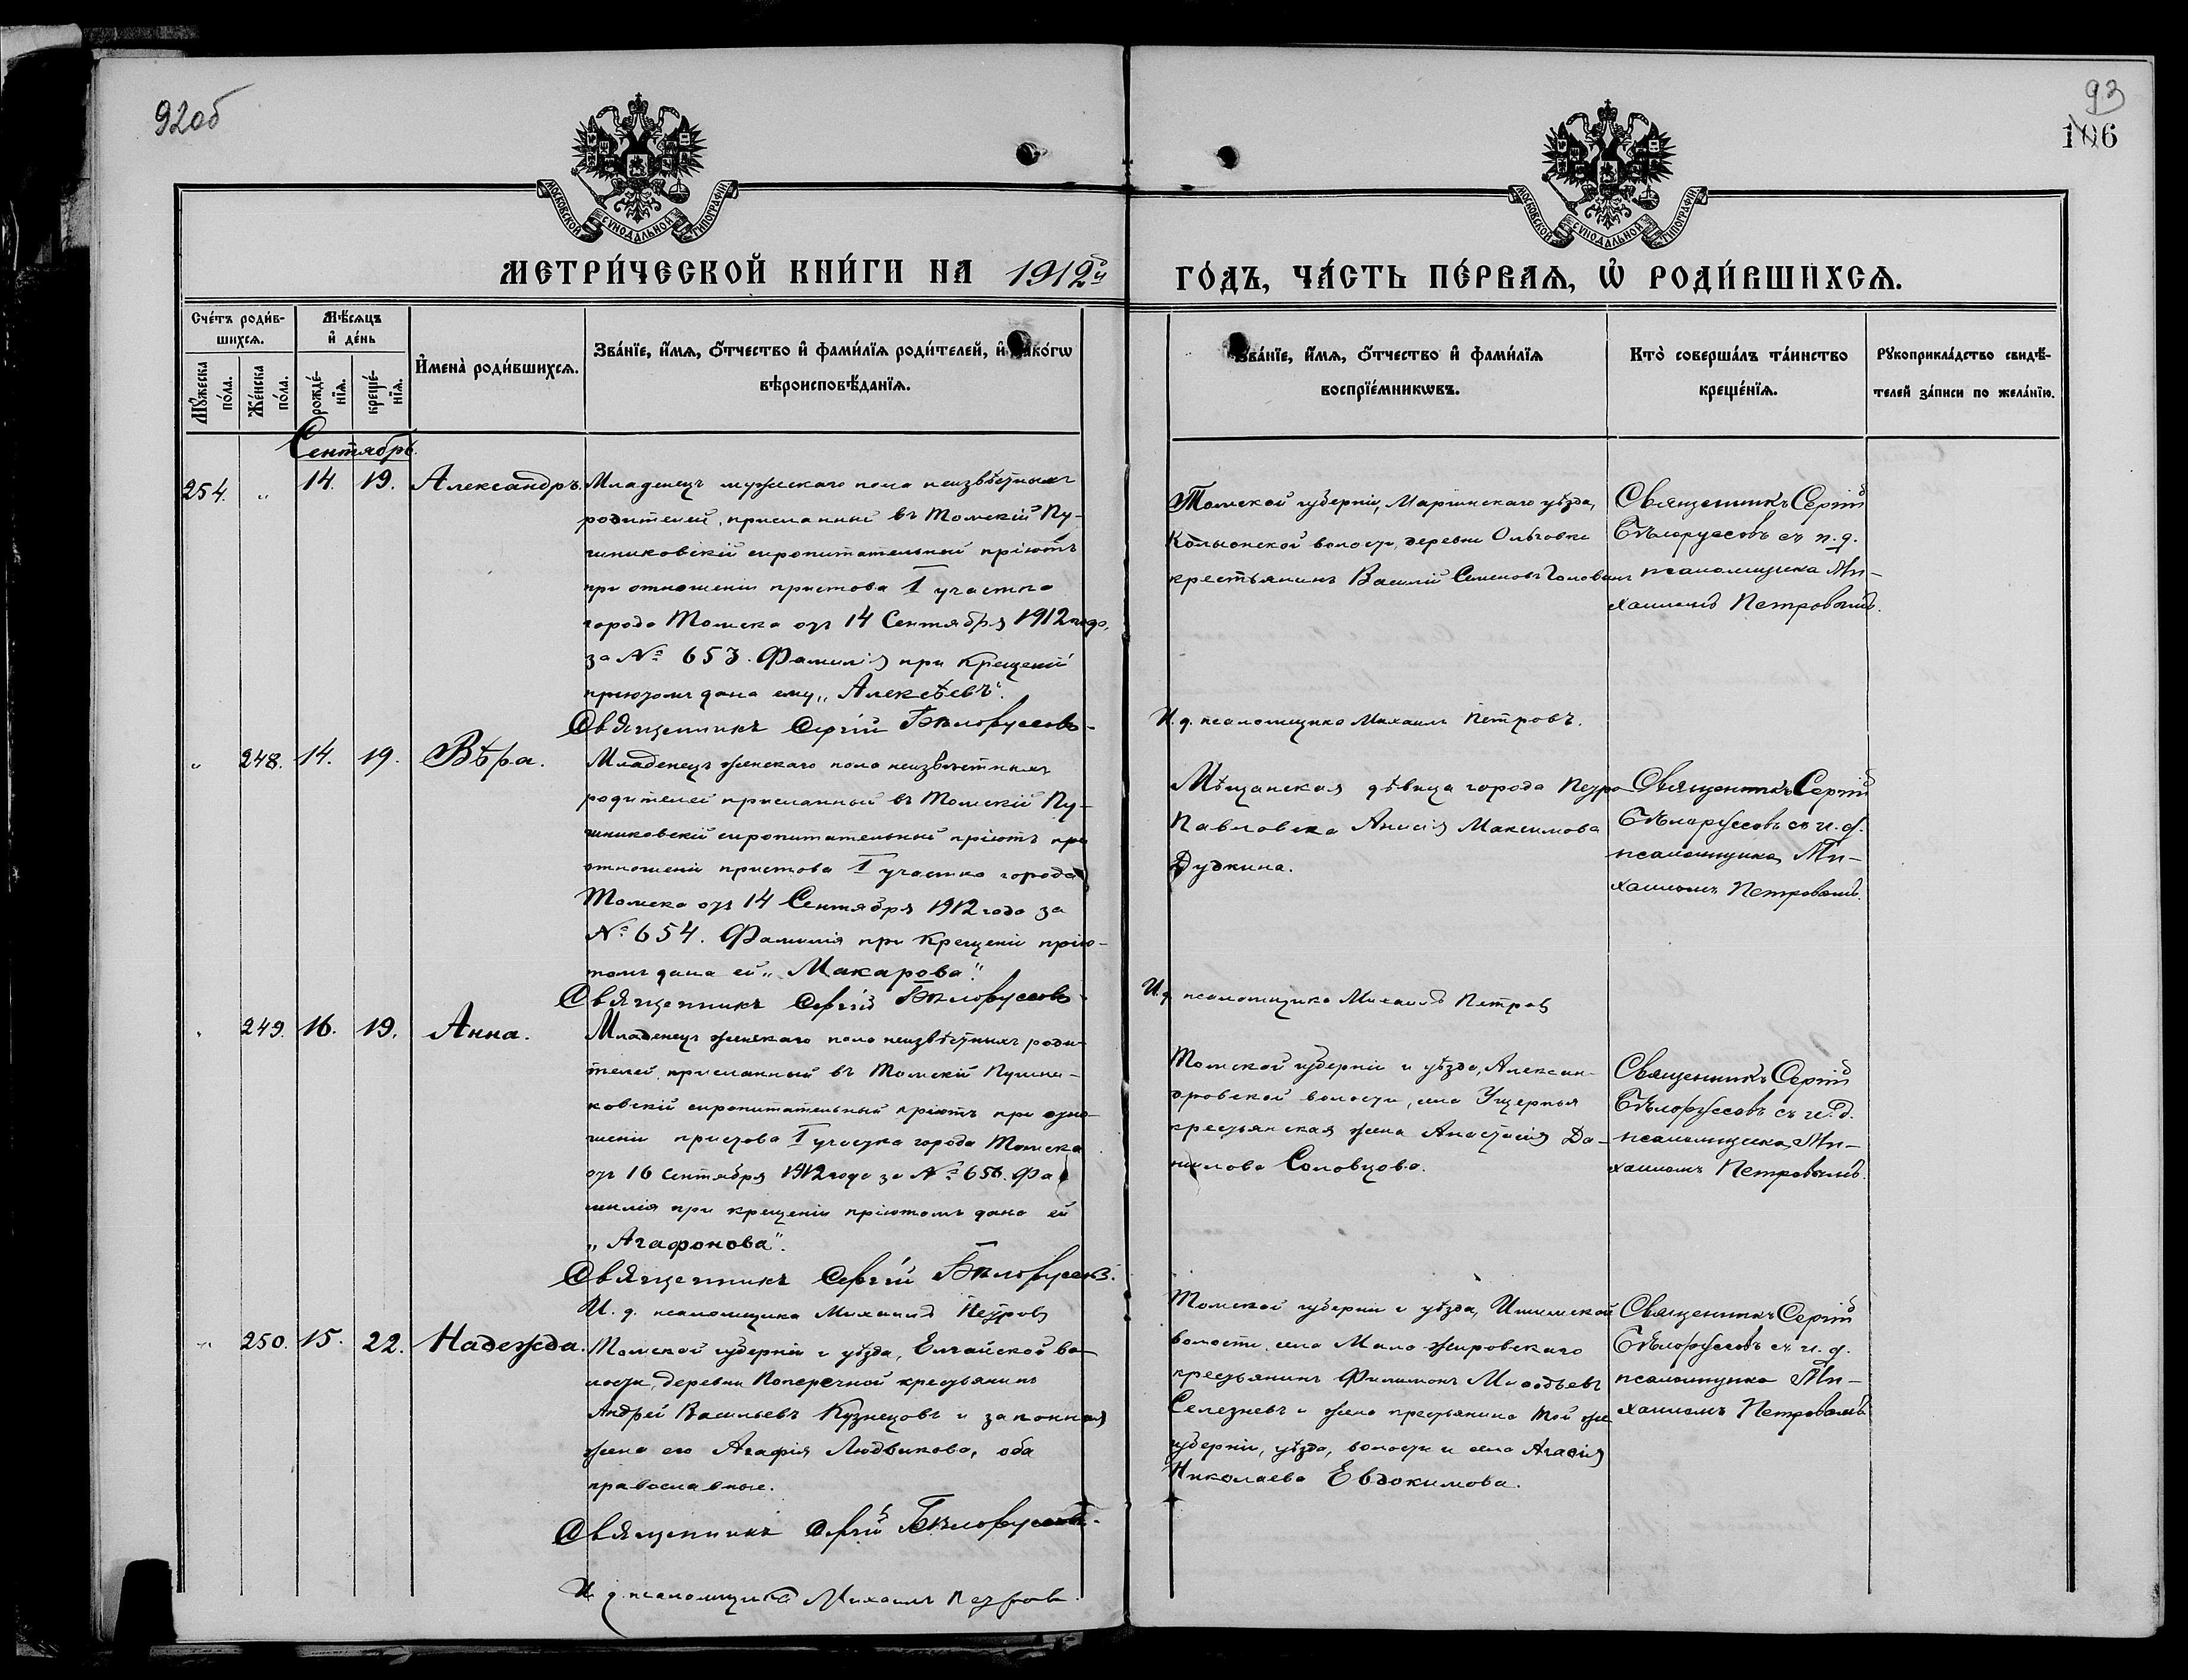 92об
93
106
МОСКОВСКОЙ СѴНОДАЛЬНОЙ ТИПОГРАФІИ
МОСКОВСКОЙ СѴНОДАЛЬНОЙ ТИПОГРАФІИ
МЕТРИ́ЧЕСКОЙ КНИ́ГИ НА 1912й
ГО́ДЪ, ЧА́СТЬ ПЕ́РВАѦ, Ѡ РОДИ́ВШИХСѦ.
Сче́тъ роди́в-
шихсѧ.
Мѣ́сѧцъ
и де́нь
Мꙋ́жеска
по́ла.
Же́нска
по́ла.
рожде́-
нїѧ.
креще́-
нїѧ.
Имена̀ роди́вшихсѧ.
Зва́нїе, и́мѧ, ѻ́тчество и фами́лїѧ роди́телей, и како́гѡ
вѣроисповѣ́данїѧ.
Зва́нїе, и́мѧ, ѻ́тчество и фами́лїѧ
воспрїе́мникѡвъ.
Кто̀ соверша́лъ та́инство
креще́нїѧ.
Рꙋкоприкла́дство свидѣ́-
телей за́писи по жела́нїю.
Сентябрь.
254. „ 14. 19. Александръ.
Младенецъ мужескаго пола неизвѣстныхъ
родителей, присланный въ Томскій Пу-
шниковскій сиропитательный пріютъ
при отношеніи пристава I участка
города Томска отъ 14 Сентября 1912 года,
за № 653. Фамилія при крещеніи
пріютомъ дана ему „Алексѣевъ".
Священникъ Сергій Бѣлоруссовъ
Томской губерніи, Маріинскаго уѣзда,
Колыонской волости, деревни Ольговки
крестьянинъ Василій Семеновъ Головин
Священникъ Сергій
Бѣлоруссовъ съ и. д.
псаломщика Ми-
хаиломъ Петровымъ.
И. д. псаломщика Михаилъ Петровъ.
„ 248. 14. 19. Вѣра.
Младенецъ женскаго пола неизвѣстныхъ
родителей присланный въ Томскій Пу-
шниковскій сиропитательный пріютъ при
отношеніи пристава I участка города
Томска отъ 14 Сентября 1912 года за
№ 654. Фамилія при крещеніи прію-
томъ дана ей „Макарова".
Священникъ Сергій Бѣлоруссовъ
Мѣщанская дѣвица города Петро
Павловска Анисія Максимова
Дудкина.
Священникъ Сергій
Бѣлоруссовъ съ и. д.
псаломщика Ми-
хаиломъ Петровымъ.
И. д. псаломщика Михаилъ Петров
„ 249. 16. 19. Анна.
Младенецъ женскаго пола неизвѣстныхъ роди-
телей, присланный въ Томскій Пушни-
ковскій сиропитательный пріютъ при отно-
шеніи пристава I участка города Томска
отъ 16 Сентября 1912 года за № 656. Фа
милія при крещеніи пріютомъ дана ей
„Агафонова".
Священникъ Сергій Бѣлоруссовъ.
И. д. псаломщика Михаилъ Петров
Томской губерніи и уѣзда, Алексан-
дровской волости, села
крестьянская жена Анастасія Да-
нилова Соловцова.
Священникъ Сергій
Бѣлоруссовъ съ и. д.
псаломщика, Ми-
хаиломъ Петровымъ.
„ 250. 15. 22. Надежда.
Томской губерніи и уѣзда, Елгайской во-
лости, деревни Поперечной крестьянинъ
Андрей Васильевъ Кузнецовъ и законная
жена его Агафія Людвикова, оба
православные.
Священникъ Сергій Бѣлоруссовъ.
И. д. псаломщика Михаилъ Петров
Томской губерніи и уѣзда, Ишимской
волости, села Мало Жировскаго
крестьянинъ Филимонъ
Селезневъ и жена крестьянина той же
губерніи, уѣзда, волости и села Агафія
Николаева Евдокимова.
Священникъ Сергій
Бѣлоруссовъ съ и. д.
псаломщика Ми-
хаиломъ Петровымъ